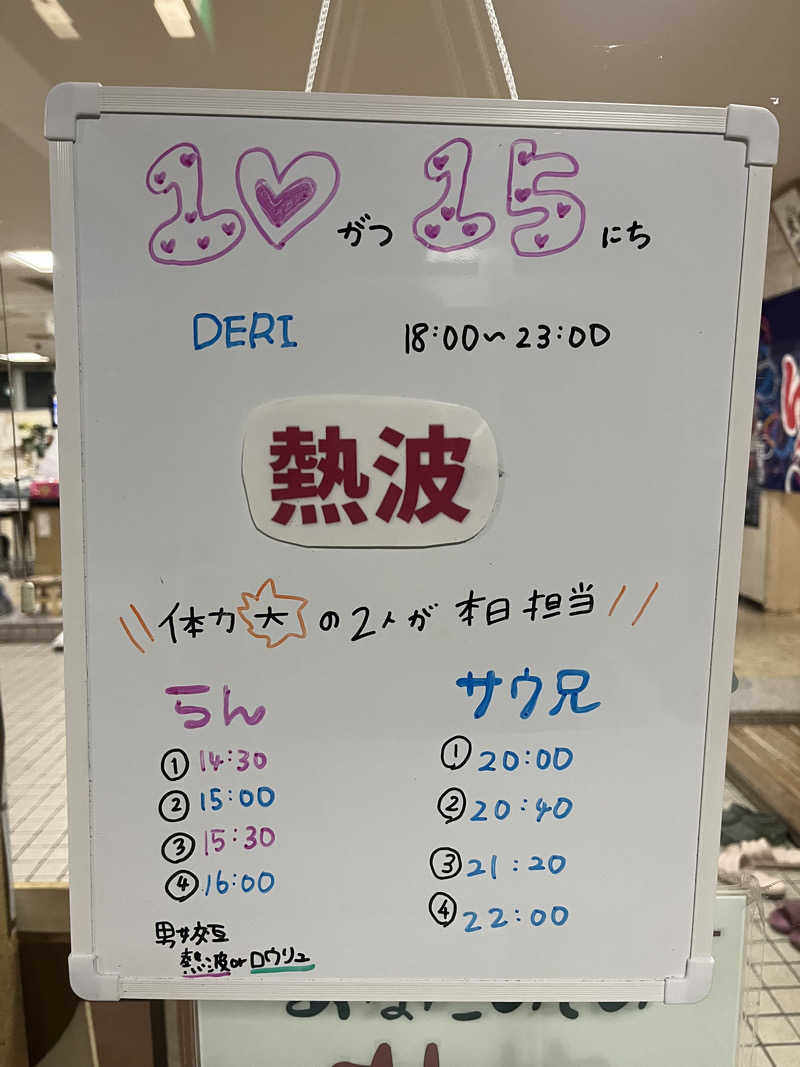 10がつ15にち
DERI 18:00〜23:00
熱波
\\体力大の2人が本日担当//
らん
サウ兄
① 14:30
② 15:00
③ 15:30
④ 16:00
① 20:00
② 20:40
③ 21:20
④ 22:00
男女交互
熱波orロウリュ